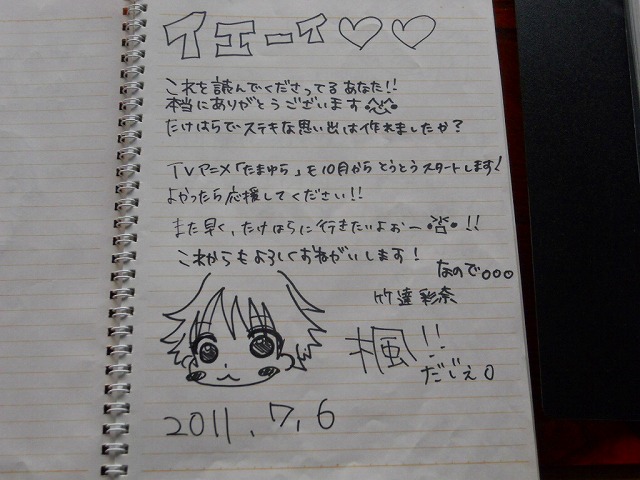 イエーイ♡♡
これを読んでくださってるあなた!!
本当にありがとうございます
たけはらでステキな思い出は作れましたか?
TVアニメ「たまゆら」も10月からとうとうスタートします!
よかったら応援してください!!
また早く、たけはらに行きたいよぉー!!
これからもよろしくおねがいします!
なので。。。
竹達彩奈
楓!!
だじぇ。
2011.7.6